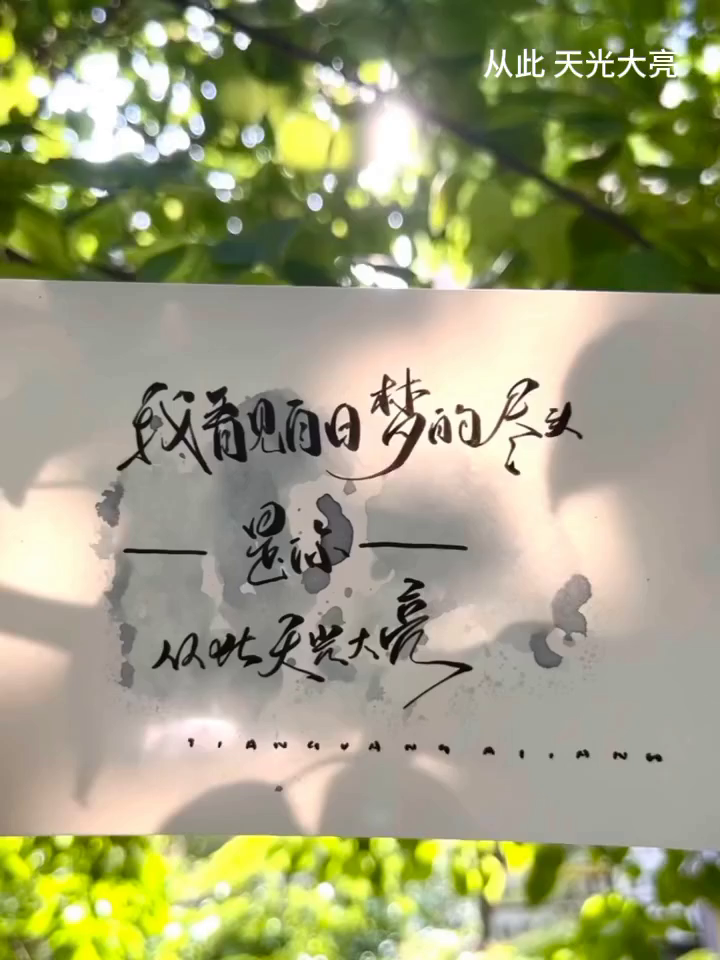 从此 天光大亮
我看见白日梦的尽头
是你
从此天光大亮